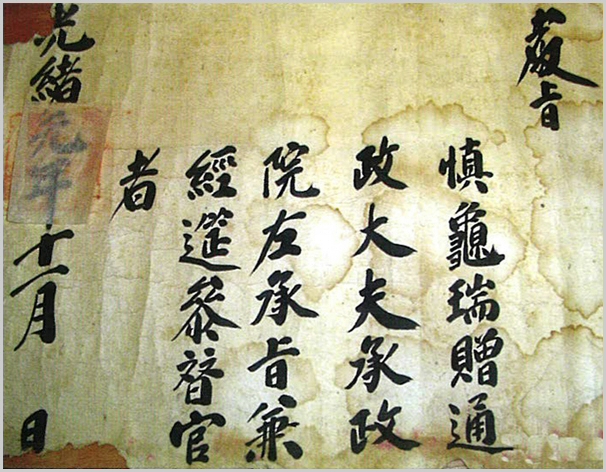 敎旨
慎龜瑞贈通
政大夫承政
院左承旨兼
經筵參贊官
者
光緒元年十一月 日